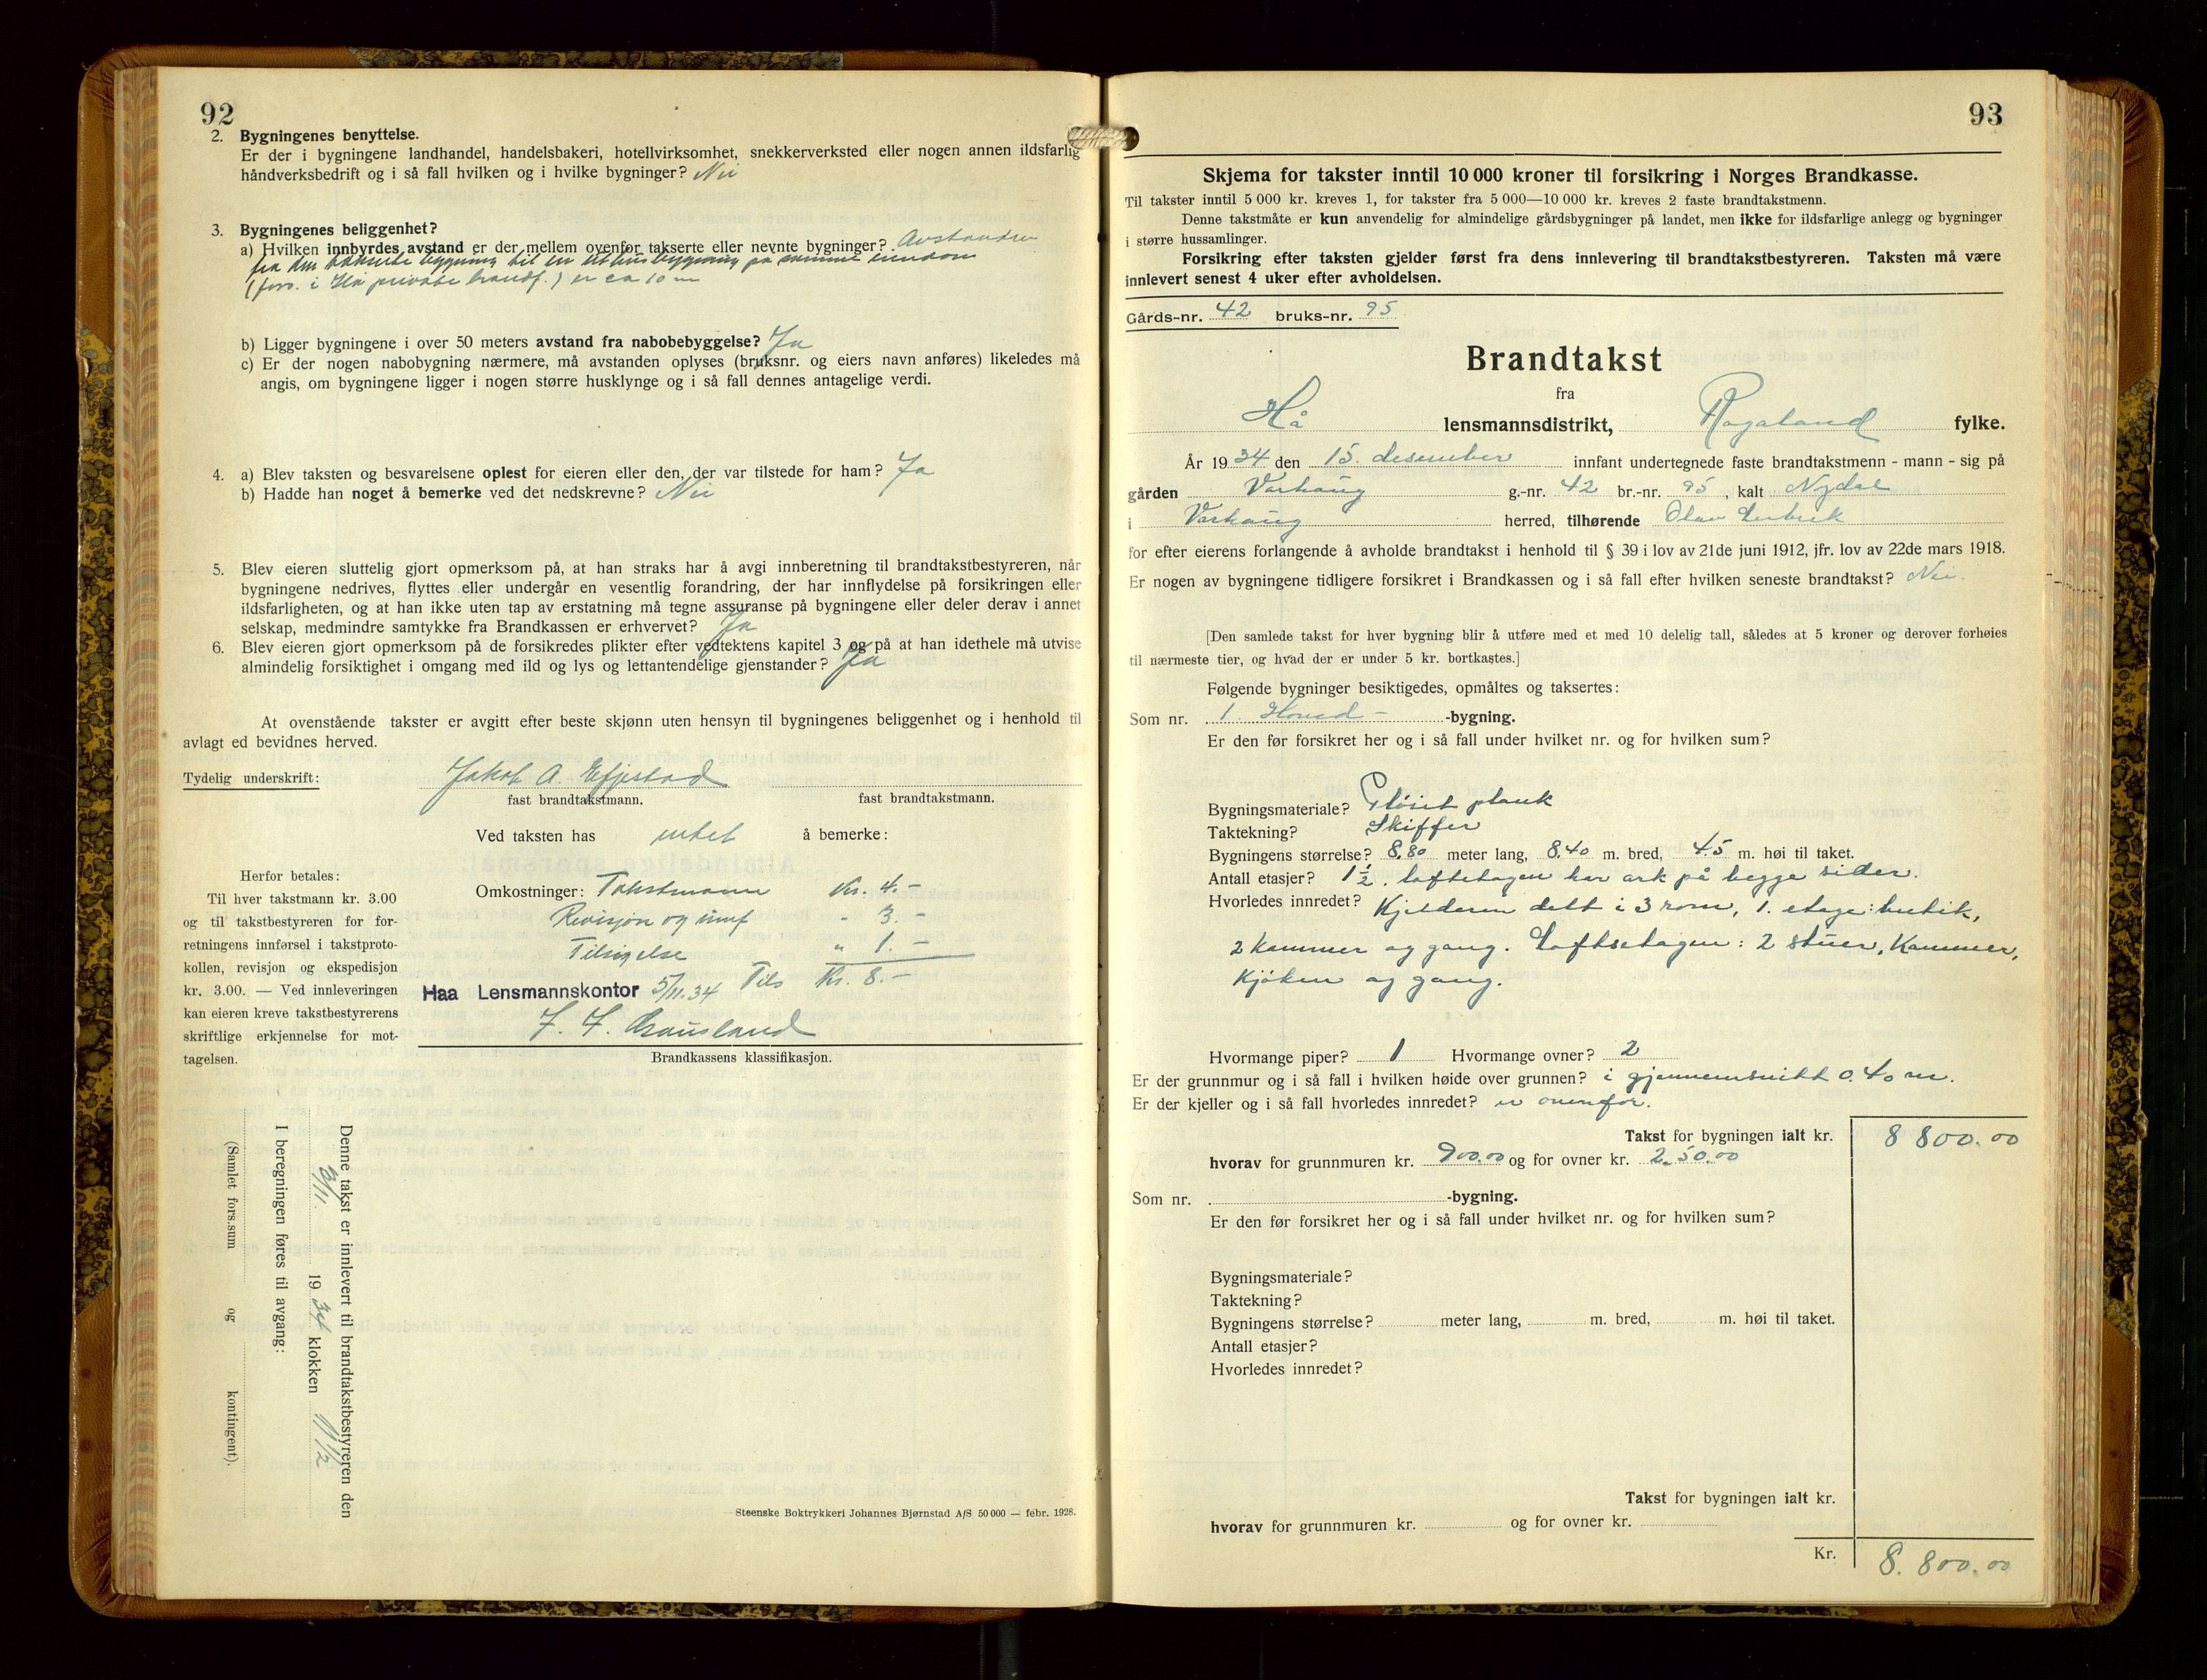 92
2. Bygningenes benyttelse.
Er der i bygningene landhandel, handelsbakeri, hotellvirksomhet, snekkerverksted eller nogen annen ildsfarlig
håndverksbedrift og i så fall hvilken og i hvilke bygninger? Nei
3. Bygningenes beliggenhet?
a) Hvilken innbyrdes avstand er der mellem ovenfor takserte eller nevnte bygninger? Avstanden
fra den takserte bygning til en uthusbygning på samme eiendom
(fors. i Hå private brandf.) er ca 10 m
b) Ligger bygningene i over 50 meters avstand fra nabobebyggelse? Ja
c) Er der nogen nabobygning nærmere, må avstanden oplyses (bruksnr. og eiers navn anføres) likeledes må
angis, om bygningene ligger i nogen større husklynge og i så fall dennes antagelige verdi.
4. a) Blev taksten og besvarelsene oplest for eieren eller den, der var tilstede for ham? Ja
b) Hadde han noget å bemerke ved det nedskrevne? Nei
5. Blev eieren sluttelig gjort opmerksom på, at han straks har å avgi innberetning til brandtakstbestyreren, når
bygningene nedrives, flyttes eller undergår en vesentlig forandring, der har innflydelse på forsikringen eller
ildsfarligheten, og at han ikke uten tap av erstatning må tegne assuranse på bygningene eller deler derav i annet
selskap, medmindre samtykke fra Brandkassen er erhvervet? Ja
6. Blev eieren gjort opmerksom på de forsikredes plikter efter vedtektens kapitel 3 og på at han idethele må utvise
almindelig forsiktighet i omgang med ild og lys og lettantendelige gjenstander? Ja
At ovenstående takster er avgitt efter beste skjønn uten hensyn til bygningenes beliggenhet og i henhold til
avlagt ed bevidnes herved.
Tydelig underskrift: Jakob A. Efjestad
fast brandtakstmann. fast brandtakstmann.
Ved taksten has intet å bemerke:
Herfor betales:
Til hver takstmann kr. 3.00
og til takstbestyreren for for-
retningens innførsel i takstproto-
kollen, revisjon og ekspedisjon
kr. 3.00. — Ved innleveringen
kan eieren kreve takstbestyrerens
skriftlige erkjennelse for mot-
tagelsen.
Omkostninger: Takstmann Kr. 4.-
Revisjon og innf - 3. -
Tilsigelse " 1. -
Haa Lensmannskontor 5/11.34 Tils Kr. 8.-
Brandkassens klassifikasjon.
Denne takst er innlevert til brandtakstbestyreren den
3/11. 19 34 klokken 11 1/2
I beregningen føres til avgang:
(Samlet fors.sum og kontingent).
Steenske Boktrykkeri Johannes Bjørnstad A/S 50 000 — febr. 1928.
93
Skjema for takster inntil 10 000 kroner til forsikring i Norges Brandkasse.
Til takster inntil 5 000 kr. kreves 1, for takster fra 5 000—10 000 kr. kreves 2 faste brandtakstmenn.
Denne takstmåte er kun anvendelig for almindelige gårdsbygninger på landet, men ikke for ildsfarlige anlegg og bygninger
i større hussamlinger.
Forsikring efter taksten gjelder først fra dens innlevering til brandtakstbestyreren. Taksten må være
innlevert senest 4 uker efter avholdelsen.
Gårds-nr. 42 bruks-nr. 95
Brandtakst
fra
Hå lensmannsdistrikt, Rogaland fylke.
År 1934 den 15. desember innfant undertegnede faste brandtakstmenn - mann - sig på
gården Varhaug g.-nr. 42 br.-nr. 95, kalt Nydal
i Varhaug herred, tilhørende Olav
for efter eierens forlangende å avholde brandtakst i henhold til § 39 i lov av 21de juni 1912, jfr. lov av 22de mars 1918.
Er nogen av bygningene tidligere forsikret i Brandkassen og i så fall efter hvilken seneste brandtakst? Nei.
[Den samlede takst for hver bygning blir å utføre med et med 10 delelig tall, således at 5 kroner og derover forhøies
til nærmeste tier, og hvad der er under 5 kr. bortkastes.]
Følgende bygninger besiktigedes, opmåltes og taksertes:
Som nr. 1. Hoved- -bygning.
Er den før forsikret her og i så fall under hvilket nr. og for hvilken sum?
Bygningsmateriale? Pløiet plank
Taktekning? Skiffer
Bygningens størrelse? 8,80 meter lang, 8,40 m. bred, 4.5 m. høi til taket.
Antall etasjer? 1 1/2. loftetagen har ark på begge sider.
Hvorledes innredet? Kjelderen delt i 3 rom, 1. etage: butik,
2 kammer og gang. Loftsetagen: 2 stuer, Kammer,
Kjøken og gang.
Hvormange piper? 1 Hvormange ovner? 2
Er der grunnmur og i så fall i hvilken høide over grunnen? i gjennemsnitt 0.40 m.
Er der kjeller og i så fall hvorledes innredet? er ovenfor.
Takst for bygningen ialt kr. 8 800.00
hvorav for grunnmuren kr. 900.00 og for ovner kr. 250.00
Som nr. -bygning.
Er den før forsikret her og i så fall under hvilket nr. og for hvilken sum?
Bygningsmateriale?
Taktekning?
Bygningens størrelse? meter lang, m. bred, m. høi til taket.
Antall etasjer?
Hvorledes innredet?
Takst for bygningen ialt kr.
hvorav for grunnmuren kr. og for ovner kr.
Kr. 8. 800.00